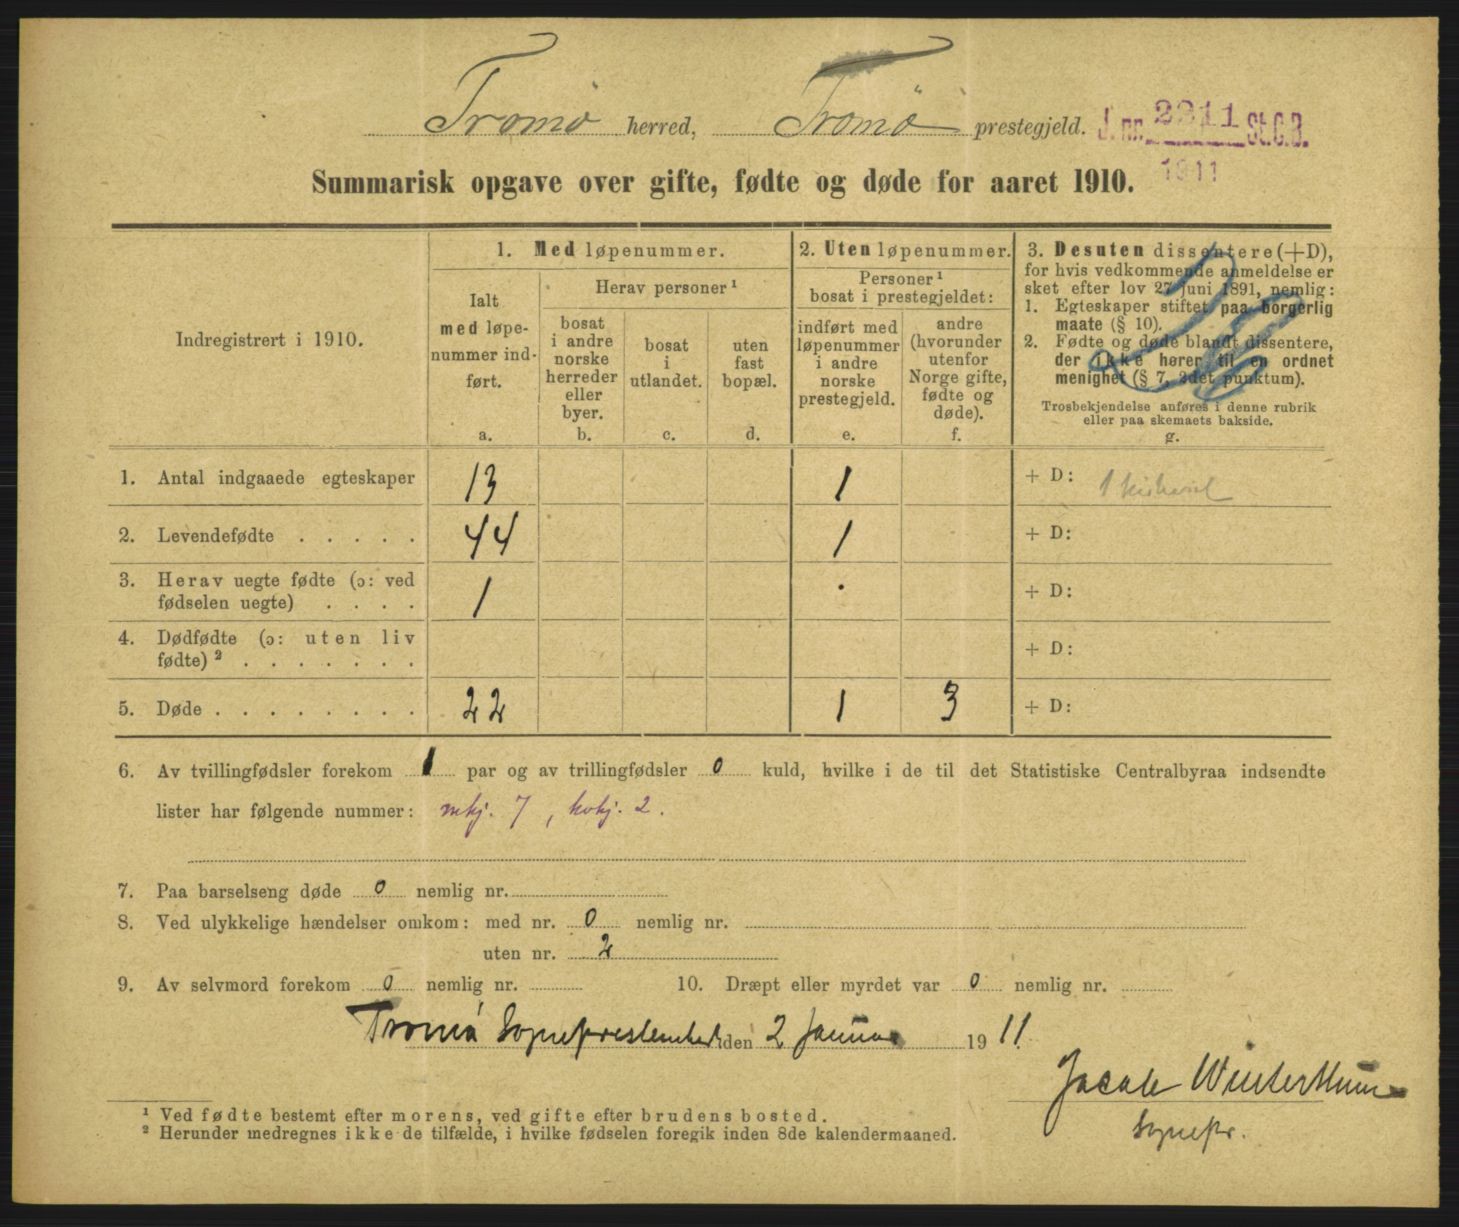 Tromø herred, Tromø prestegjeld. J. nr. 2311 St.C.B.
1911
Summarisk opgave over gifte, fødte og døde for aaret 1910.
Indregistrert i 1910.
1. Med løpenummer.
Ialt med løpenummer indført.
a.
Herav personer¹
bosat i andre norske herreder eller byer.
b.
bosat i utlandet.
c.
uten fast bopæl.
d.
2. Uten løpenummer.
Personer¹ bosat i prestegjeldet:
indført med løpenummer i andre norske prestegjeld.
e.
andre (hvorunder utenfor Norge gifte, fødte og døde).
f.
3. Desuten dissentere (+D),
for hvis vedkommende anmeldelse er
sket efter lov 27 juni 1891, nemlig:
1. Egteskaper stiftet paa borgerlig
maate (§ 10).
2. Fødte og døde blandt dissentere,
der ikke hører til en ordnet
menighet (§ 7, 2det punktum).
Trosbekjendelse anføres i denne rubrik
eller paa skemaets bakside.
g.
1. Antal indgaaede egteskaper 13 1 + D: 1
2. Levendefødte . . . . . 44 1 + D:
3. Herav uegte fødte (ɔ: ved
fødselen uegte) . . . . 1 · + D:
4. Dødfødte (ɔ: uten liv
fødte)² . . . . . . . + D:
5. Døde . . . . . . . . 22 1 3 + D:
6. Av tvillingfødsler forekom 1 par og av trillingfødsler 0 kuld, hvilke i de til det Statistiske Centralbyraa indsendte
lister har følgende nummer: mkj. 7, kvkj. 2.
7. Paa barselseng døde 0 nemlig nr.
8. Ved ulykkelige hændelser omkom: med nr. 0 nemlig nr.
uten nr. 2
9. Av selvmord forekom 0 nemlig nr. 10. Dræpt eller myrdet var 0 nemlig nr.
Tromø Sogneprestembed, den 2 Januar 1911.
Jacob Winterthun
Sognepr.
¹ Ved fødte bestemt efter morens, ved gifte efter brudens bosted.
² Herunder medregnes ikke de tilfælde, i hvilke fødselen foregik inden 8de kalendermaaned.